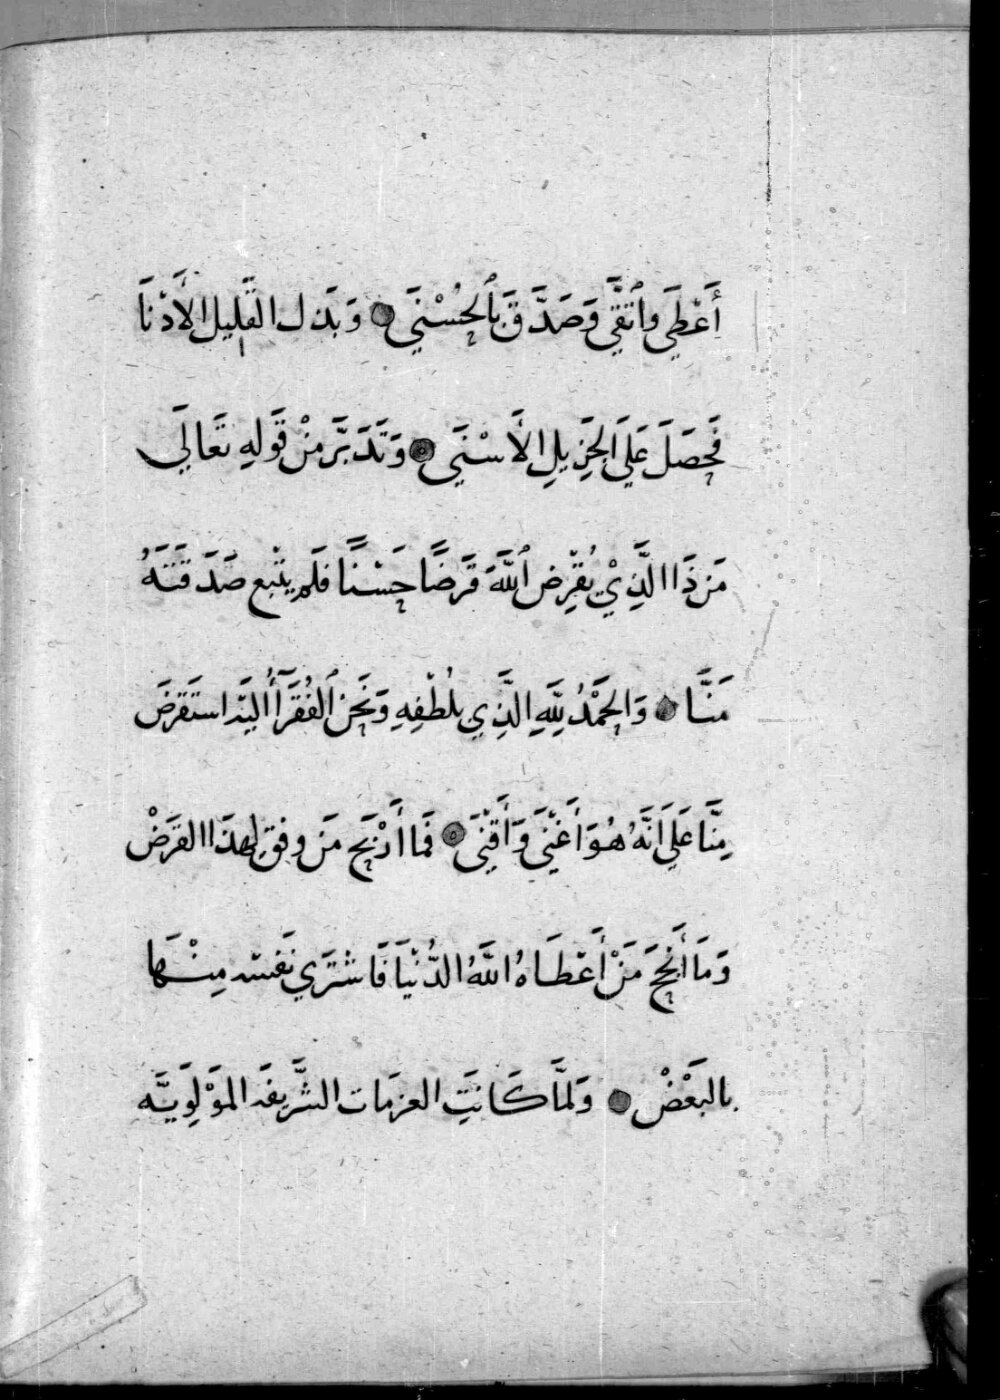 أَعْطَي وٱتقَّي وَصَدَّقَ بٱلحُسْنَي ۝ وَبَذَل القَلِيل الأَدْنَا
فَحصَلَ عَلَى الجَزِيلِ الأَسْنَي ۝ وَتَدَبَّرَ مِنْ قَوَلِهِ تعَالَي
مَن ذَا الَّذِيْ يُقْرِض ٱللَّهَ قَرَضًا حَسَنًا فلَم يتْبع صَدَقَتَهُ
مَنَّا ۝ وَالحَمْدُ لِلَّهِ الَّذِي بلُطْفِهِ وَنَحَن ٱلفُقَرَآأُ اليَه استَقرَضَ
مِنَّا عَلَى انَّهُ هُوَ أَغْنَي وَأَقْنَي ۝ فَما أَرْبَح مَن وفق لِهذَا القرَضْ
وَمَا أَنجَحَ مَنْ أَعَطَاهُ اللَّهُ الدُّنْيَا فَاشتَرَي نَفسَه مِنْهَا
بالبَعْضْ ۝ وَلَمَّا كَانَتِ العزمَات الشَّريفَه المَوْلَوِيَّه